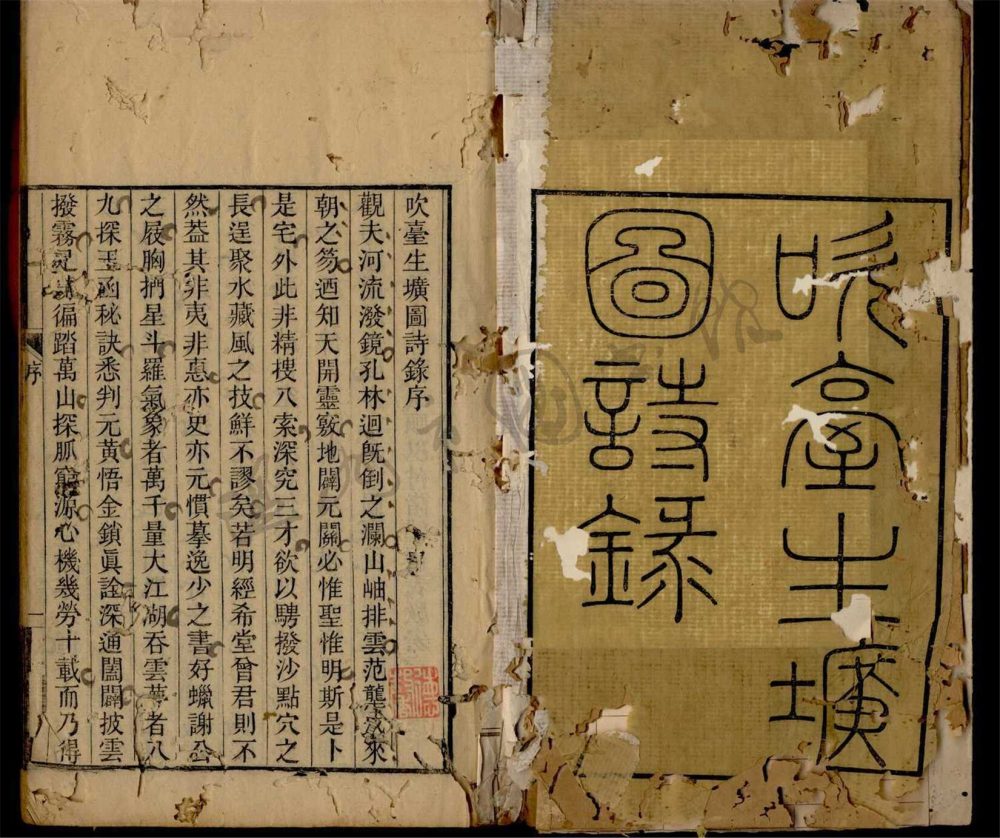 吹臺生壙
圖詩錄
吹臺生壙圖詩錄序
觀夫河流潑鏡孔林迴旣倒之瀾山岫排雲范壟成來
朝之笏迺知天開靈竅地闢元關必惟聖惟明斯是卜
是宅外此非精搜八索深究三才欲以騁撥沙點穴之
長逞聚水藏風之技鮮不謬矣若明經希堂曾君則不
然葢其非夷非惠亦史亦元慣摹逸少之書好蠟謝公
之屐胸捫星斗羅氣象者萬千量大江湖吞雲夢者八
九探玉函秘訣悉判元黃悟金鎖眞詮深通闔闢披雲
撥霧足徧踏萬山探脈窮源心機幾勞十載而乃得
序
一